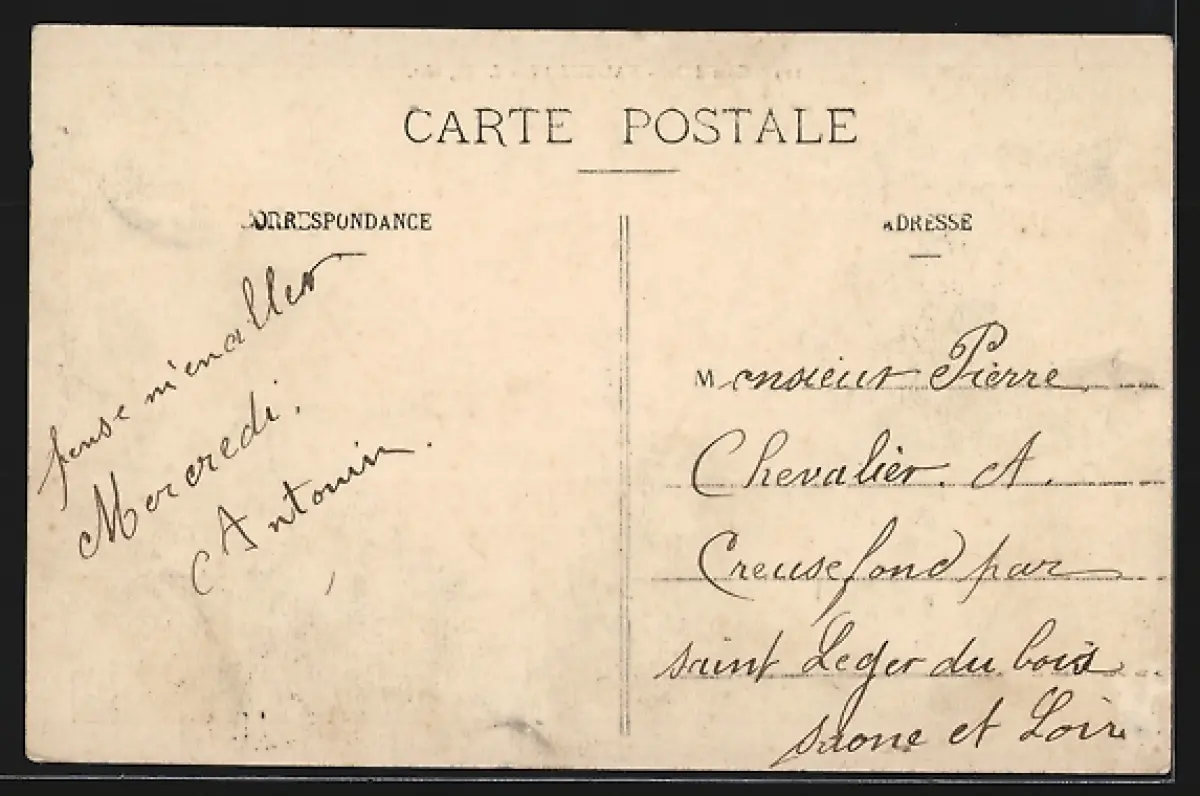 CARTE POSTALE
CORRESPONDANCE
pense m'en aller
Mercredi.
Antonin.
ADRESSE
Monsieur Pierre
Chevalier. A.
Creusefond par
saint Leger du bois
saone et Loire